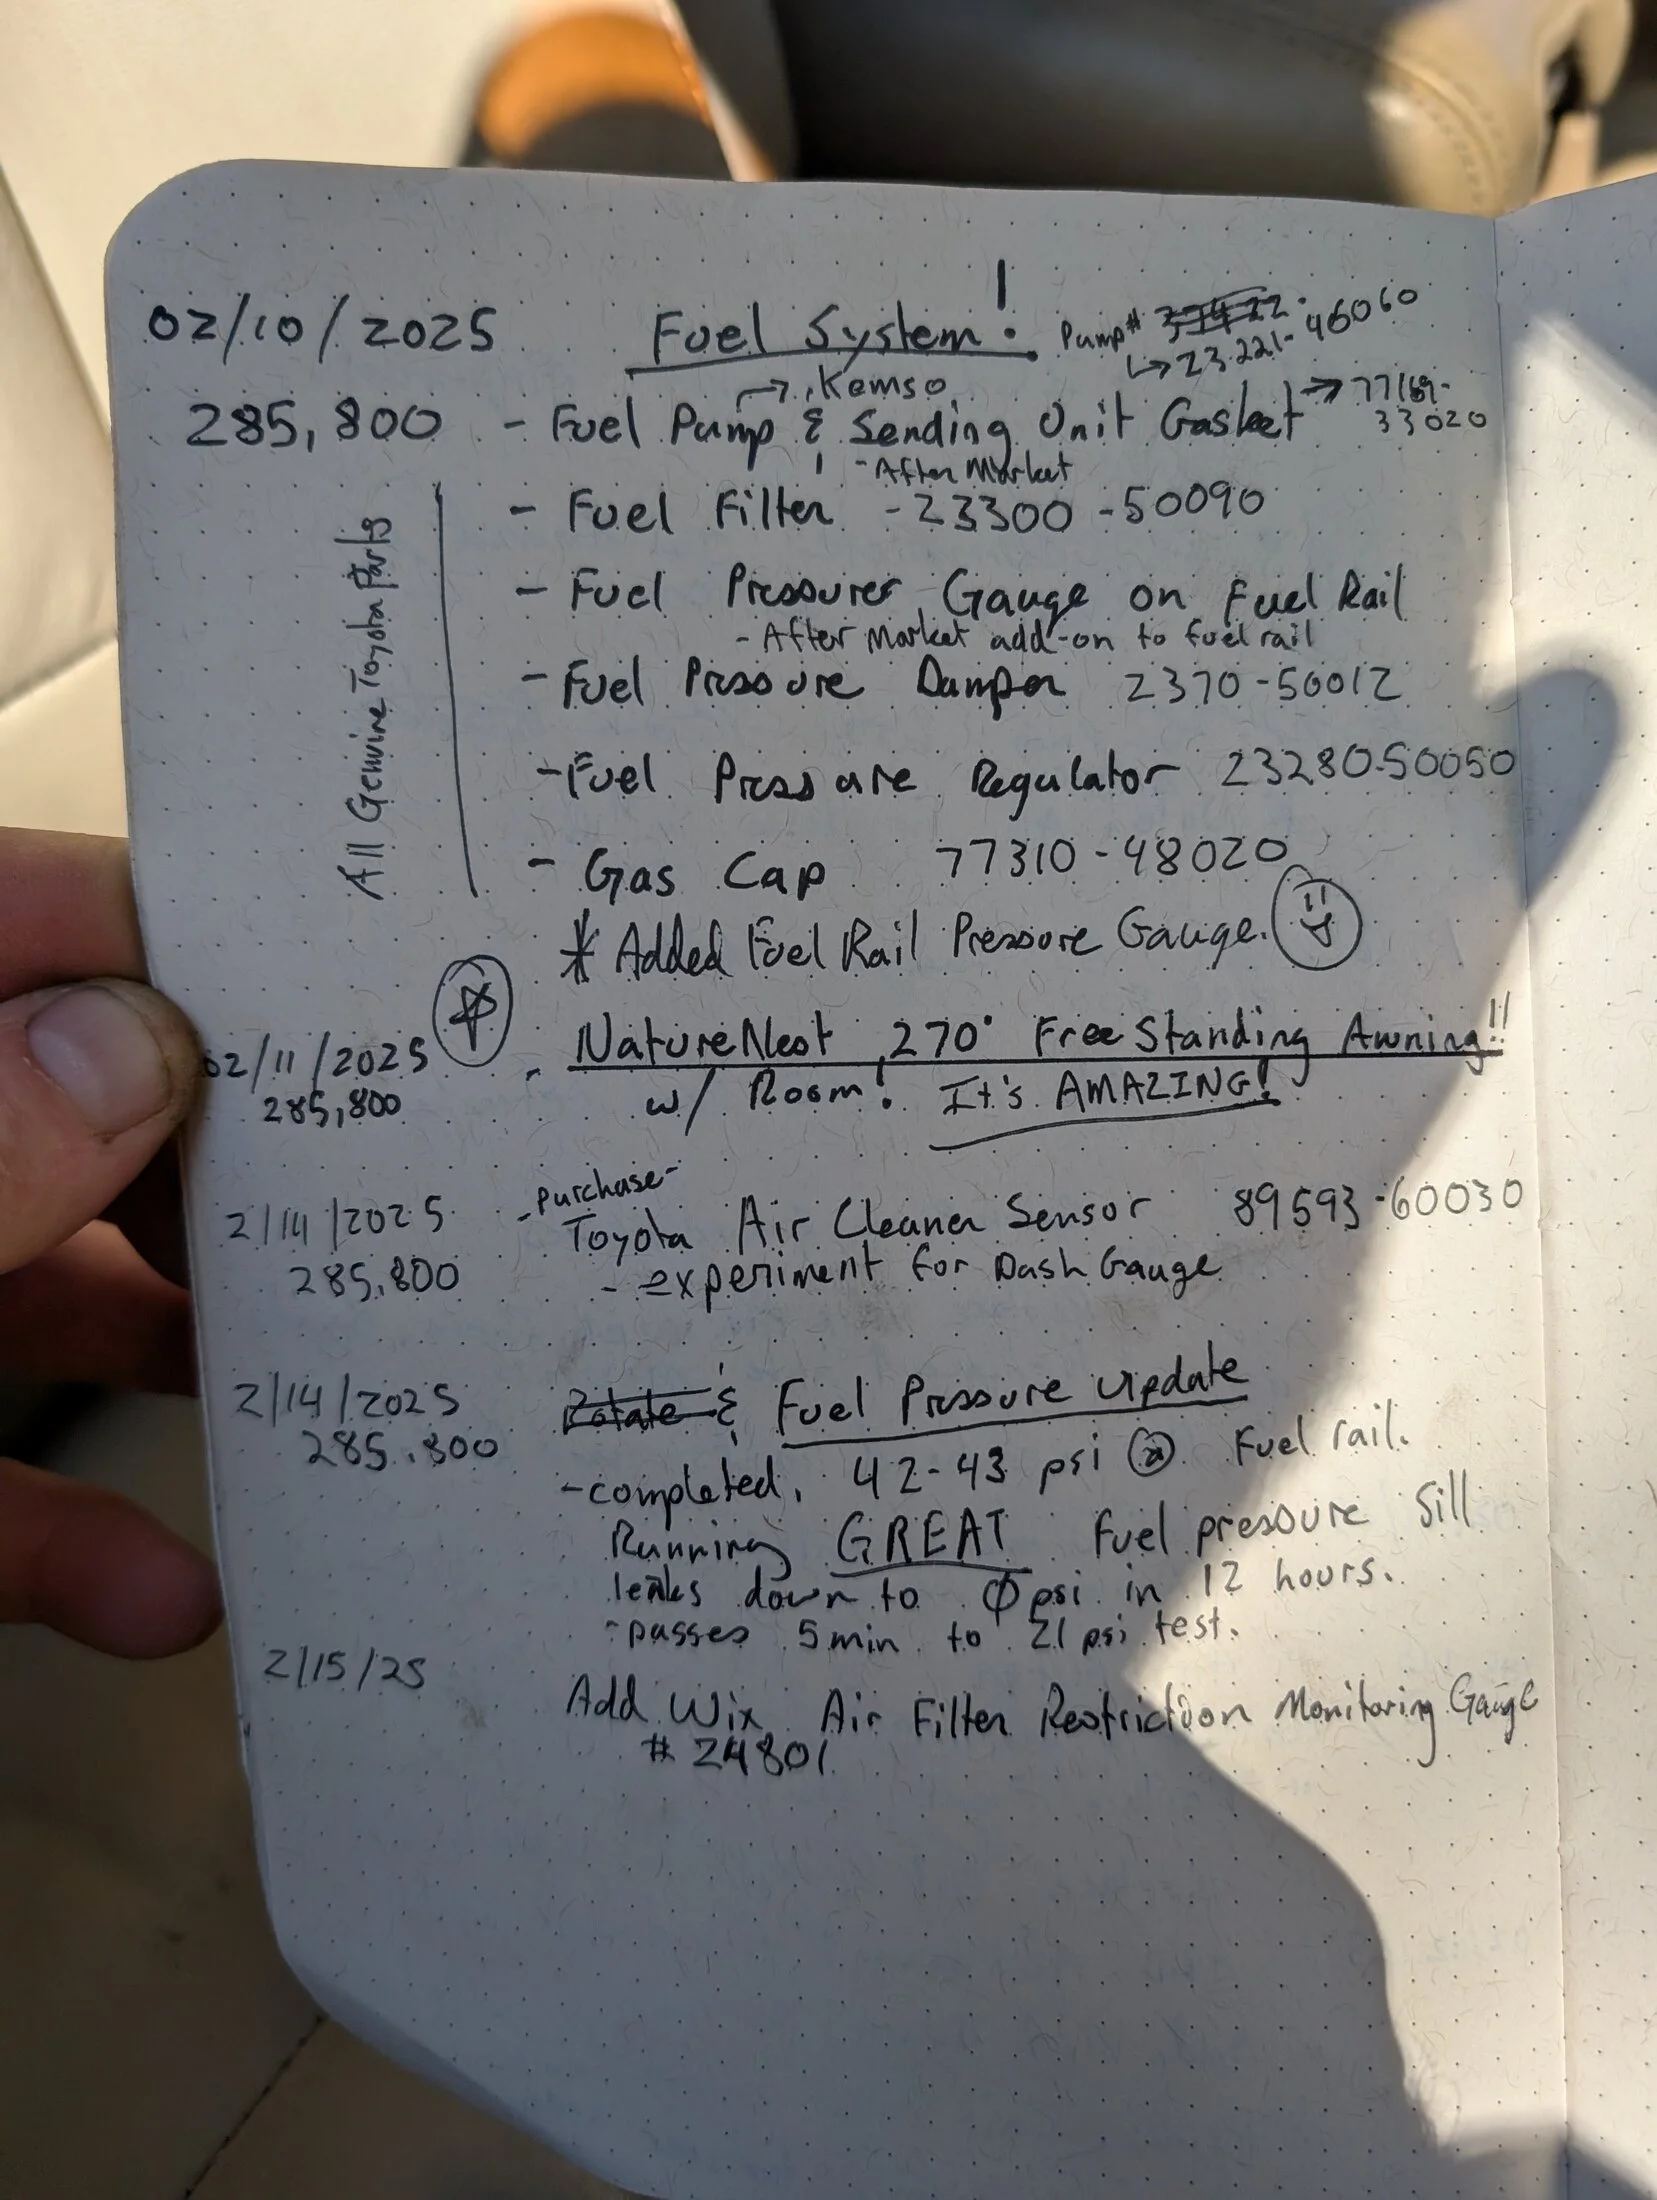 02/10/2025 Fuel System! Pump#
↳ 23221-46060
→ Kemso
285,800 - Fuel Pump & Sending Unit Gasket → 77169-
33020
- After Market
- Fuel Filter - 23300-50090
- Fuel Pressurer Gauge on Fuel Rail
- After Market add-on to fuel rail
- Fuel Pressure Damper 2370-50012
- Fuel Pressure Regulator 23280-50050
- Gas Cap 77310-48020
All Genuine Toyota Parts
* Added Fuel Rail Pressure Gauge.
02/11/2025 - NatureNest 270° FreeStanding Awning!!
285,800 w/ Room! It's AMAZING!
- Purchase -
2/14/2025 Toyota Air Cleaner Sensor 89593-60030
285,800 - experiment for Dash Gauge
2/14/2025 Rotate & Fuel Pressure Update
285,800 - completed, 42-43 psi @ Fuel rail.
Running GREAT Fuel pressure Sill
leaks down to Ø psi in 12 hours.
- passes 5 min to 21 psi test.
2/15/25 Add Wix Air Filter Restriction Monitoring Gauge
# 24801